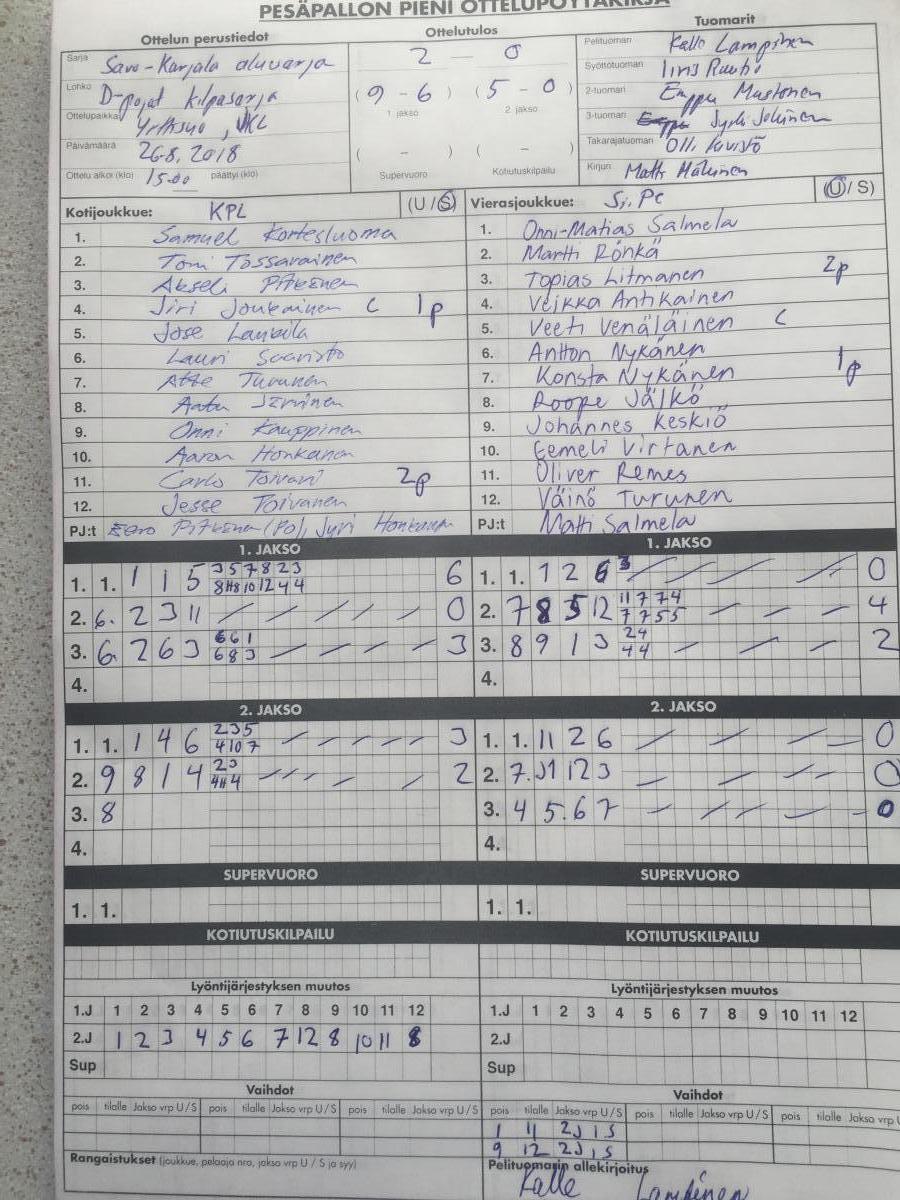 PESÄPALLON PIENI OTTELUPÖYTÄKIRJA
Ottelun perustiedot
Sarja Savo-Karjala aluvarja
Lohko D-pojat kilpasarja
Ottelupaikka VKL
Päivämäärä 26.8.2018
Ottelu alkoi (klo) 15.00 päättyi (klo)
Ottelutulos
2 — 0
( 9 - 6 ) ( 5 - 0 )
1. jakso 2. jakso
( - ) ( - )
Supervuoro Kotiutuskilpailu
Tuomarit
Pelituomari Kalle Lampinen
Syöttötuomari Iiris
2-tuomari Mustonen
3-tuomari Jyrki
Takarajatuomari Olli
Kirjuri Matti
Kotijoukkue: KPL (U / S)
1. Samuel Kortesluoma
2. Toni Tossavainen
3. Akseli Pitkänen
4. Jiri Joukainen C 1p
5. Jose
6. Lauri Saaristo
7. Atte Turunen
8. Aatu
9. Onni Kauppinen
10. Aaron Honkanen
11. Carlo Toivari 2p
12. Jesse Toivanen
PJ:t Eero Pitkänen (PO), Jyri Honkanen
Vierasjoukkue: SiiPe (U / S)
1. Onni-Matias Salmela
2. Martti Rönkä
3. Topias Litmanen 2p
4. Veikka Antikainen
5. Veeti Venäläinen C
6. Antton Nykänen
7. Konsta Nykänen 1p
8. Roope Jälkö
9. Johannes Keskiö
10. Eemeli Virtanen
11. Oliver Remes
12. Väinö Turunen
PJ:t Matti Salmela
1. JAKSO
1. 1. 1 1 5 3 5 7 8 2 3 6
8 11 8 10 12 4 4
2. 6. 2 3 11 0
3. 6 2 6 3 6 6 1 3
6 8 3
4.
1. JAKSO
1. 1. 1 2 6 3 0
2. 7 8 5 12 11 7 7 4 4
7 7 5 5
3. 8 9 1 3 2 4 2
4 4
4.
2. JAKSO
1. 1. 1 4 6 2 3 5 3
4 10 7
2. 9 8 1 4 2 3 2
4 11 4
3. 8
4.
2. JAKSO
1. 1. 11 2 6 0
2. 7. 12 3 0
3. 4 5. 6 7 0
4.
SUPERVUORO
1. 1.
SUPERVUORO
1. 1.
KOTIUTUSKILPAILU
KOTIUTUSKILPAILU
Lyöntijärjestyksen muutos
1.J 1 2 3 4 5 6 7 8 9 10 11 12
2.J 1 2 3 4 5 6 7 12 8 10 11 8
Sup
Lyöntijärjestyksen muutos
1.J 1 2 3 4 5 6 7 8 9 10 11 12
2.J
Sup
Vaihdot
pois tilalle Jakso vrp U / S pois tilalle Jakso vrp U / S pois tilalle Jakso vrp U / S
Rangaistukset (joukkue, pelaaja nro, jakso vrp U / S ja syy)
Vaihdot
pois tilalle Jakso vrp U / S pois tilalle Jakso vrp U / S pois tilalle Jakso vrp U
1 11 2J 1 S
9 12 2J 1 S
Pelituomarin allekirjoitus
Kalle Lampinen